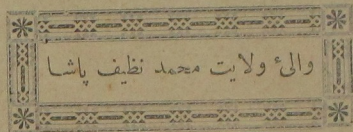 والئ ولايت محمد نظيف پاشا